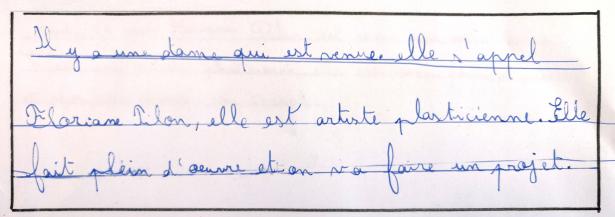 Il y a une dame qui est venue. elle s'appel
Floriane Pilon, elle est artiste plasticienne. Elle
fait plein d'oeuvre et on va faire un projet.